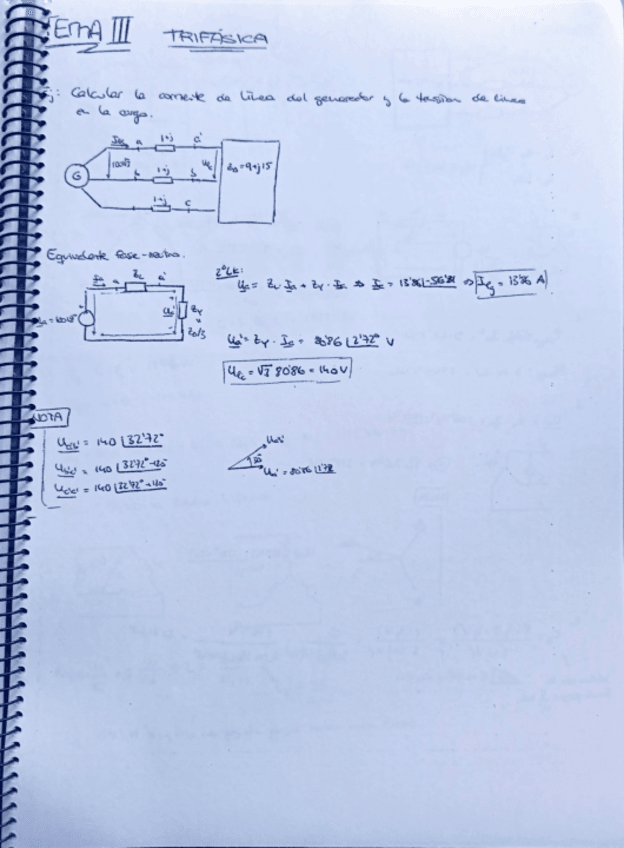 TEMA III TRIFÁSICA
Ej: Calcular la corriente de línea del generador y la tensión de línea
en la carga.
a 1+j a'
G
b 1+j b'
ZΔ = 9+j15
1+j c'
Equivalente fase-neutro.
2º LK:
Ua = ZL · Ia + ZY · Ia ⇒ Ia = 13'86 |-56'31 ⇒ ILg = 13'86 A
Ia ZL a'
Ua'
ZY
ZΔ/3
Ua' = ZY · Ia = 80'86 |2'72° V
ULc = √3 80'86 = 140 V
NOTA
Ua'b' = 140 |32'72°
Ub'c' = 140 |32'72° -120°
Uc'a' = 140 |32'72° +120°
Ua'b'
30°
Ua' = 80'86 |2'72